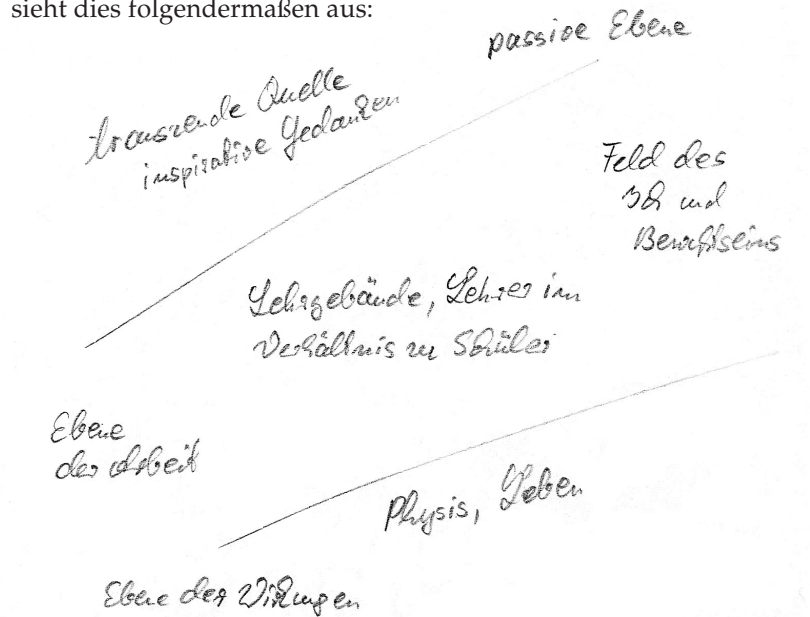 sieht dies folgendermaßen aus:
passive Ebene
transzende Quelle
inspirative Gedanken
Feld des
Ich und
Bewußtseins
Lehrgebäude, Lehrer im
Verhältnis zu Schüler
Ebene
der Arbeit
Physis, Leben
Ebene der Wirkungen